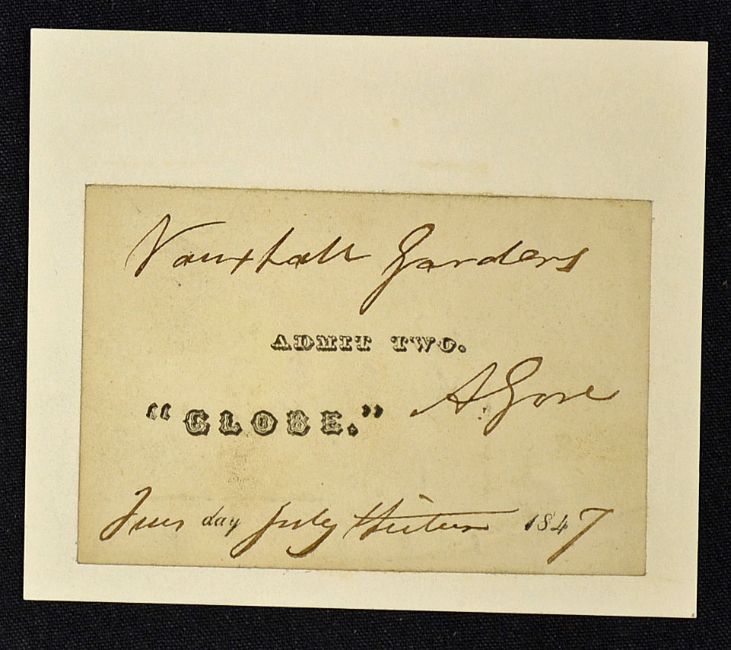 Vauxhall Gardens
ADMIT TWO.
"GLOBE." A Gore
Tues day July thirteen 1847